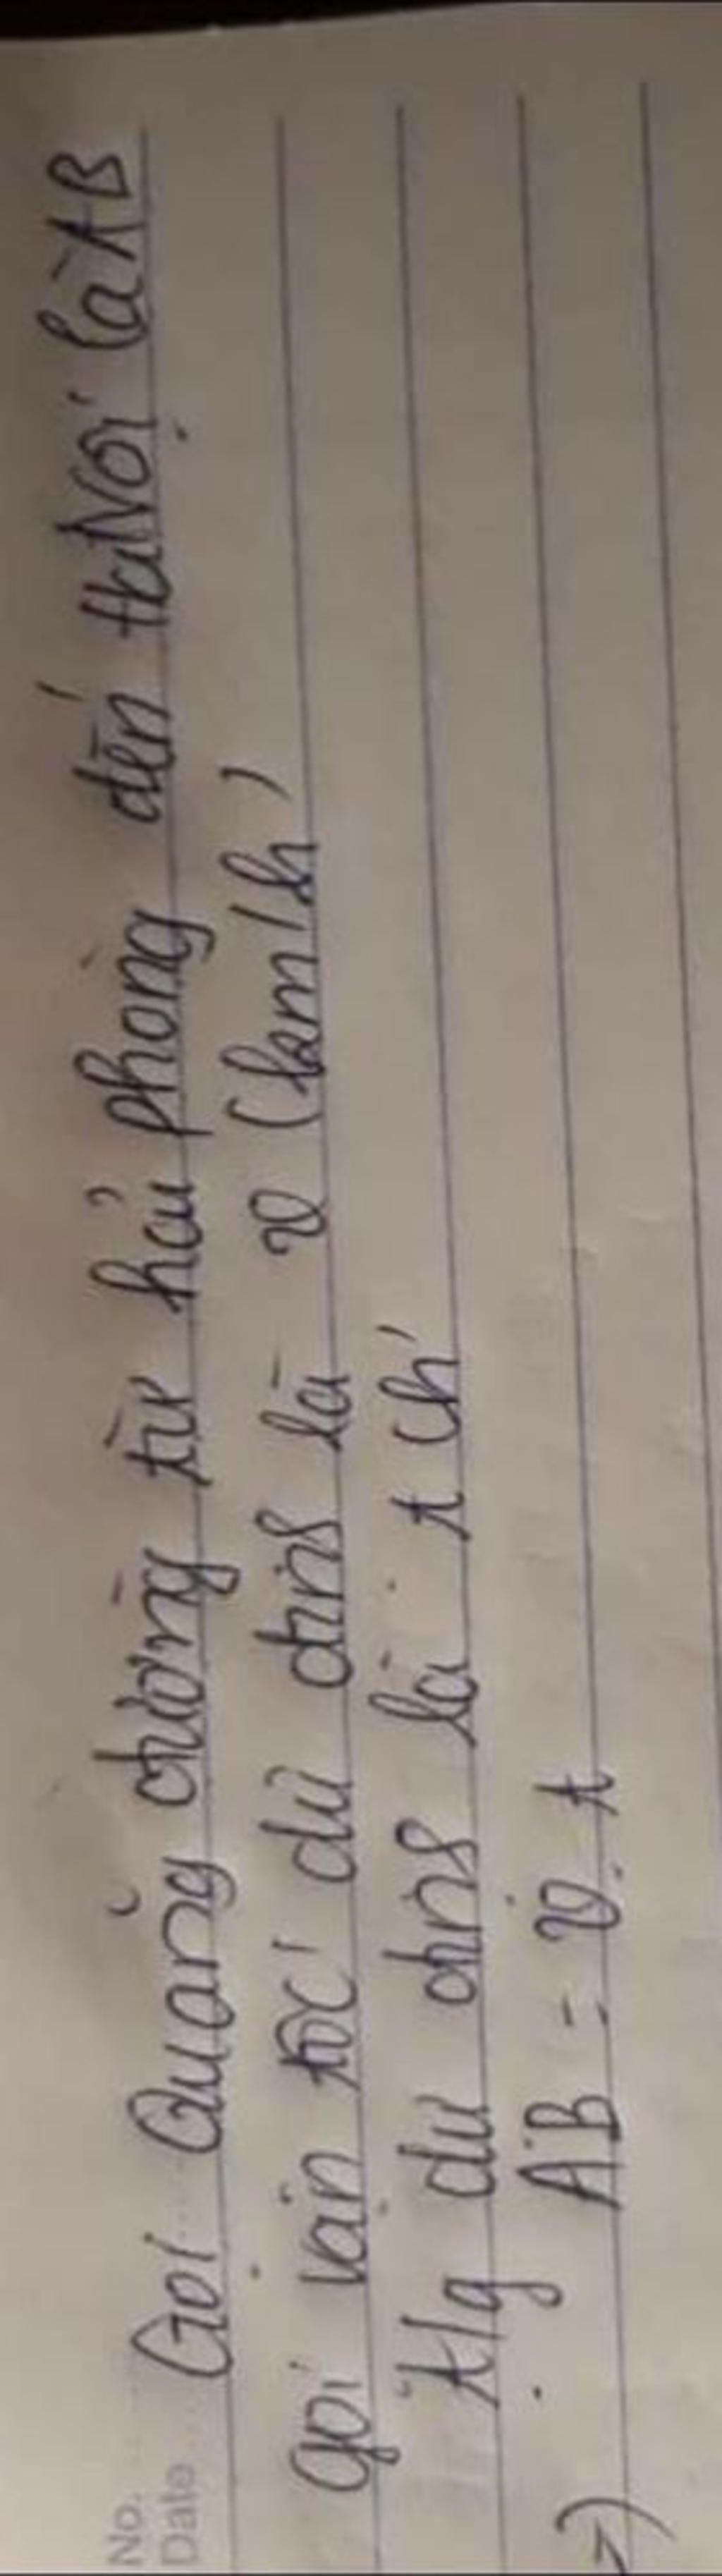 No.
Date
Gọi Quãng đường từ hải phòng đến Hà Nội là AB
gọi vận tốc dự định là v (km/h)
t/g dự định là t (h)
=> AB = v.t